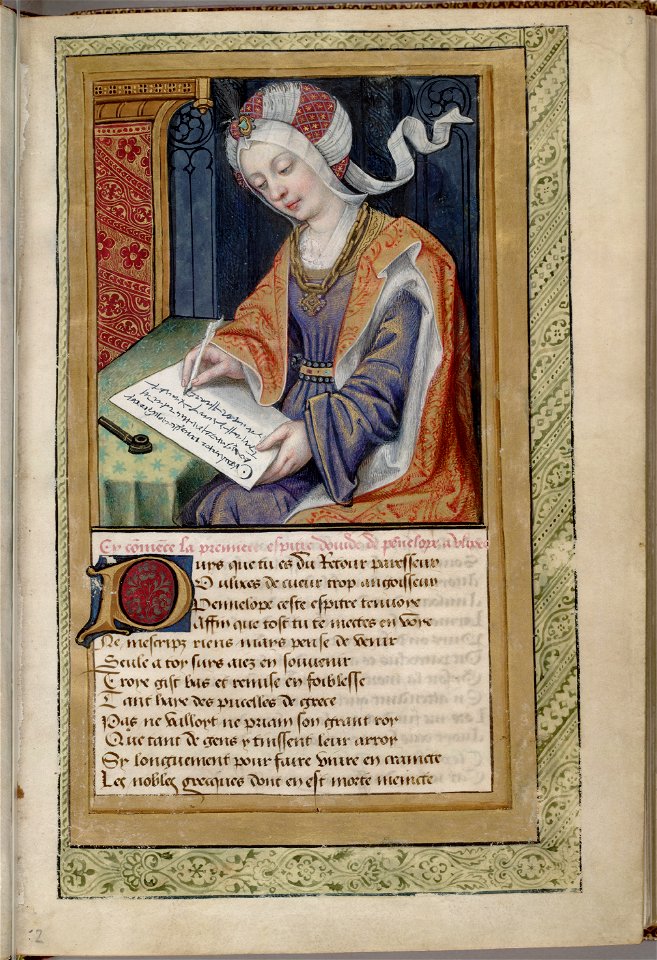 3
Cy comence la premiere espitre douide de penelope a vlixes
Puys que tu es du Retour paresseux
O ulixes de cueur trop angoisseux
Pennelope ceste espitre tenuoye
Affin que tost tu te mettes en voye
Ne mescripz riens mays pense de venir
Seule a toy suys aiez en souuenir
Troye gist bas et remise en foiblesse
Tant haye des pucelles de grece
Pas ne valloyt ne priam son grant roy
Que tant de gens y tinssent leur arroy
Sy longuement pour faire viure en craincte
Les nobles grecques dont en est morte maincte
:2